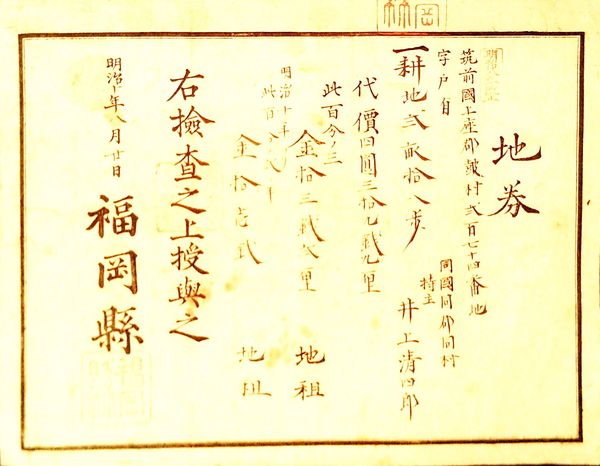 地券
筑前國上座郡 村弐百七十四番地
字戸
一耕地弐畝拾八歩
同國同郡同村
持主 井上清四郎
代價四圓三拾九銭九厘
此百分ノ三
金拾三銭弐厘 地租
明治十年ヨリ
此百分
金拾壱銭 地租
右撿查之上授與之
明治十年八月廿日
福岡縣